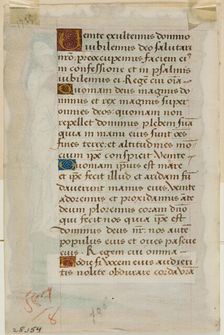 Venite exultemus domino
iubilemus deo salutari
nr̄o: preocupemus faciem eiꝰ
in confessione et in psalmis
iubilemus ei. Rege cui oīa
Quoniam deus magnus do
minus et rex magnus super
omnes deos: quoniam non
repellet dominus plebem su
quia in manu eius sunt oēs
fines terre: et altitudines mo
cium ipse conspicit Venite
Quoniam ipsius est mare
et ip̄e fecit illud et aridam fū
dauerunt manus eius Venite
adoremus et procidamus ate
deum ploremus coram dn̄o
qui fecit nos quia ip̄e est
dominus deus nr̄: nos autē
populus eius et oues pascue
eius. Regem cui omnia
Hodie si vocem eius audieri
tis nolite obdurare corda vr̄a
28.154